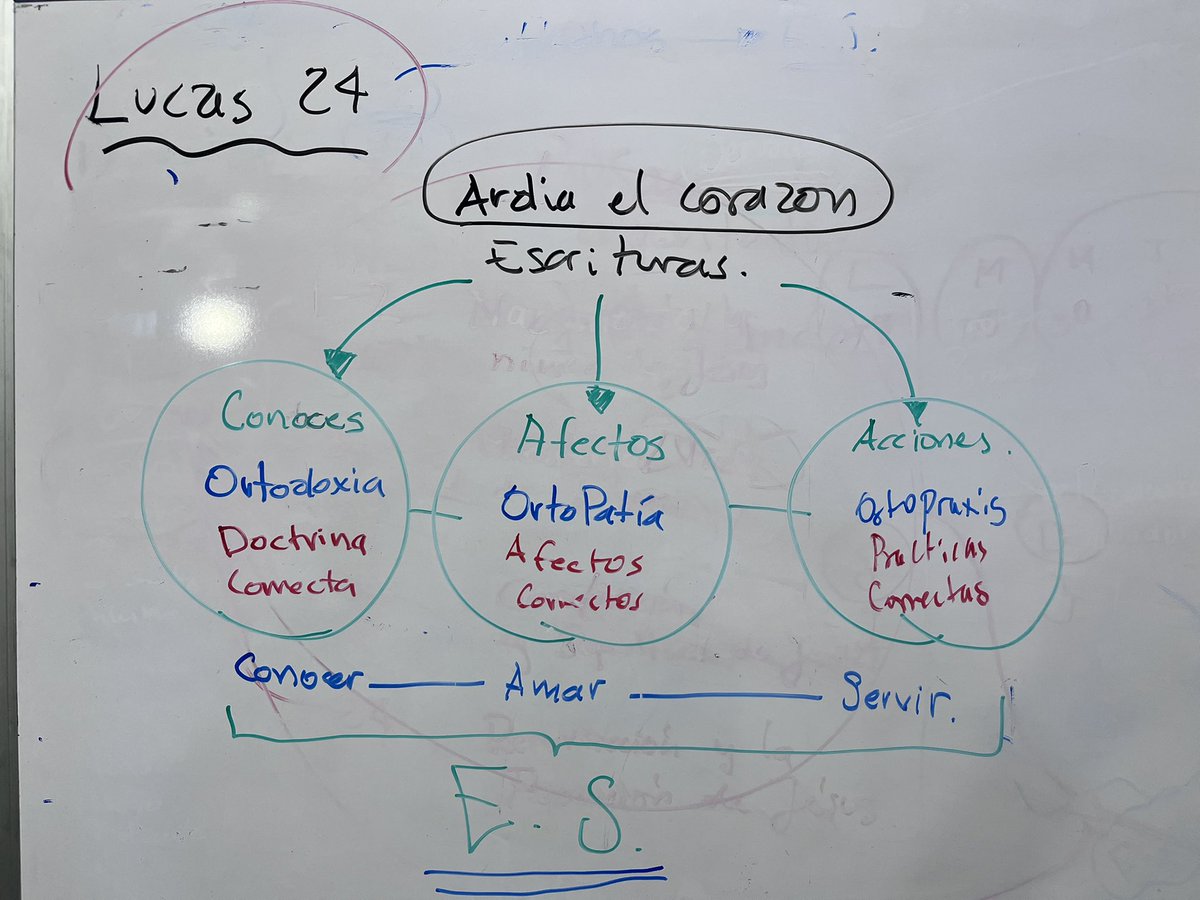 Lucas 24
Ardia el corazon
Escrituras.
Conoces
Ortodoxia
Doctrina
Correcta
Afectos
OrtoPatía
Afectos
Correctos
Acciones.
Ortopraxis
Practicas
Correctas
Conocer — Amar — Servir.
E. S.